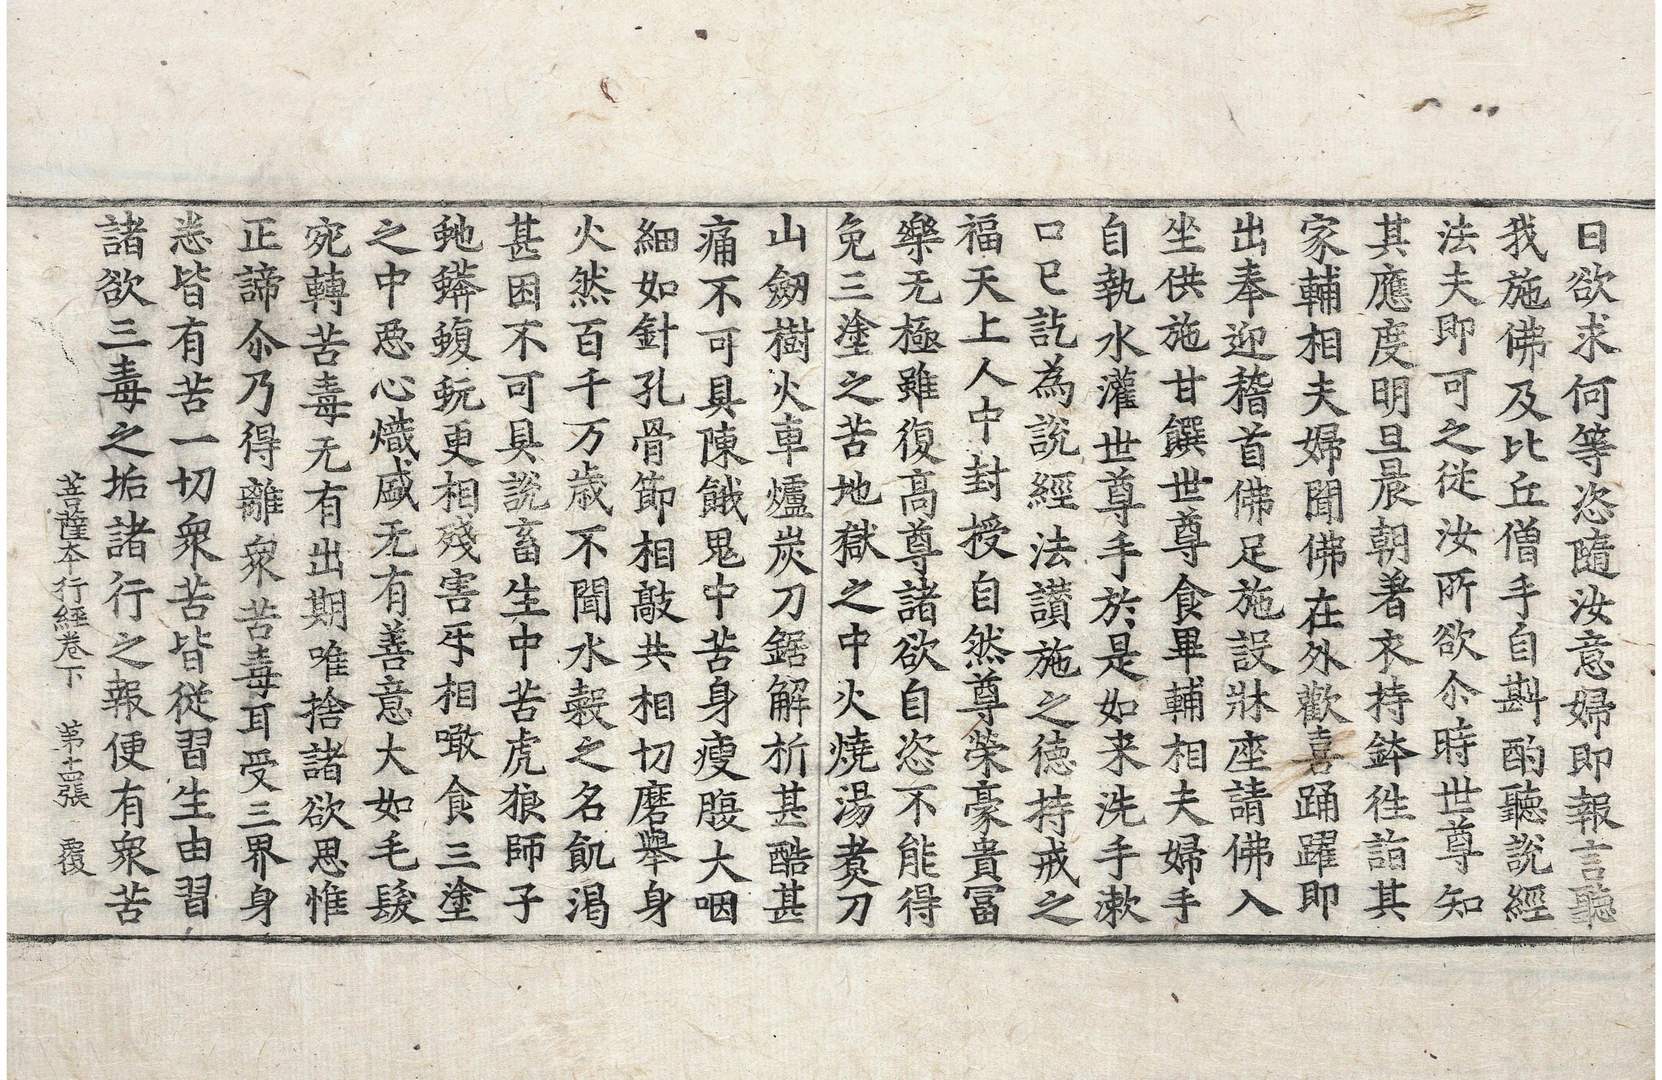 曰欲求何等恣隨汝意婦即報言聽
我施佛及比丘僧手自斟酌聽說經
法夫即可之從汝所欲尒時世尊知
其應度明旦晨朝著衣持鉢往詣其
家輔相夫婦聞佛在外歡喜踊躍即
出奉迎稽首佛足施設牀座請佛入
坐供施甘饌世尊食畢輔相夫婦手
自執水灌世尊手於是如来洗手漱
口已訖為說經法讃施之德持戒之
福天上人中封授自然尊榮豪貴冨
樂无極雖復高尊諸欲自恣不能得
免三塗之苦地獄之中火燒湯煑刀
山劒樹火車爐炭刀鋸解析甚酷甚
痛不可具陳餓鬼中苦身瘦腹大咽
細如針孔骨節相敲共相切磨舉身
火然百千万歳不聞水穀之名飢渴
甚困不可具說畜生中苦虎狼師子
虵蟒蝮蚖更相殘害牙相噉食三塗
之中惡心熾盛无有善意大如毛髮
宛轉苦毒无有出期唯捨諸欲思惟
正諦尒乃得離衆苦毒耳受三界身
悉皆有苦一切衆苦皆從習生由習
諸欲三毒之垢諸行之報便有衆苦
菩薩本行經卷下　第十四張　覆